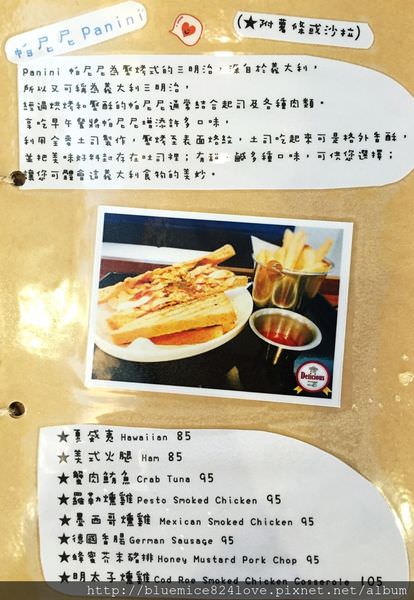 帕尼尼 Panini
(★附薯條或沙拉)
Panini 帕尼尼為壓烤式的三明治，源自於義大利，
所以又可稱為義大利三明治，
經過烘烤和壓酥的帕尼尼通常結合起司及各種肉類。
享吃早午餐將帕尼尼增添許多口味，
利用全麥土司，壓烤至表面烙紋，土司吃起來可是格外香酥，
並把美味好料封存在吐司裡；有甜、鹹多種口味，可供您選擇；
讓您可體會這義大利食物的美妙。
Delicious
★夏威夷 Hawaiian 85
★美式火腿 Ham 85
★蟹肉鮪魚 Crab Tuna 95
★羅勒燻雞 Pesto Smoked Chicken 95
★墨西哥燻雞 Mexican Smoked Chicken 95
★德國香腸 German Sausage 95
★蜂蜜芥末豬排 Honey Mustard Pork Chop 95
★明太子燻雞 Cod Roe Smoked Chicken Casserole 105
http://bluemice824love.pixnet.net/album